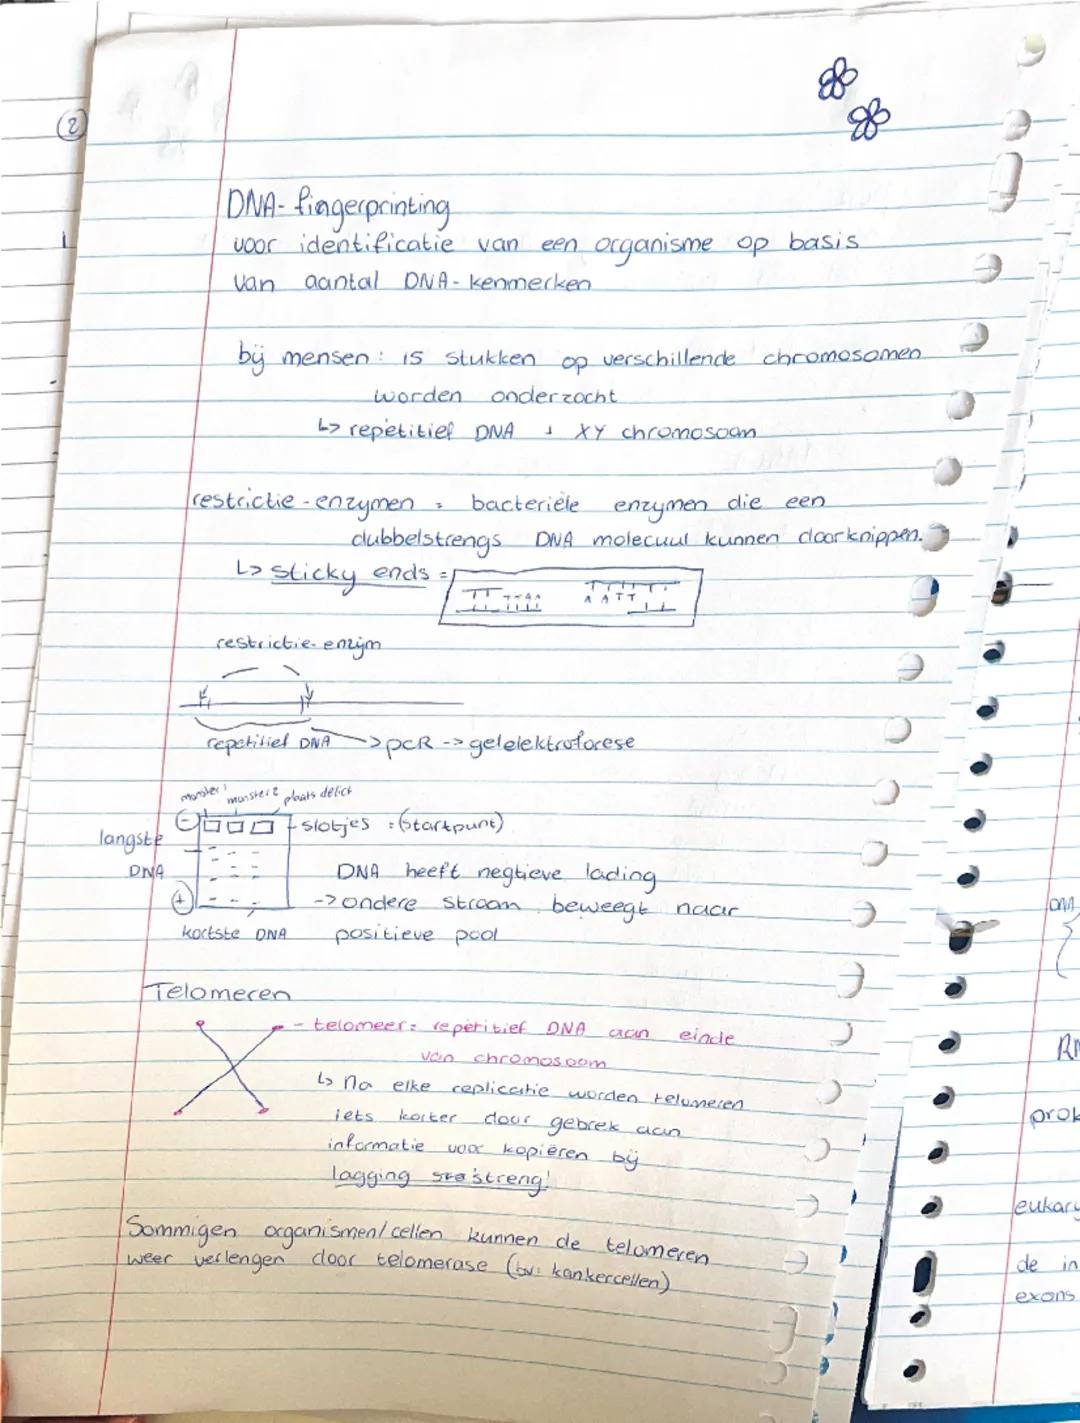 2
DNA-fingerprinting
voor identificatie van een organisme op basis
van aantal DNA-kenmerken
bij mensen: 15 stukken op verschillende chromosomen
worden onderzocht
↳ repetitief DNA + XY chromosoom
restrictie-enzymen = bacteriële enzymen die een
dubbelstrengs DNA molecuul kunnen doorknippen.
↳ sticky ends =
TTAA
AATT
restrictie-enzijm
repetitief DNA -> pcR -> gelelektroforese
monster 1 monster 2 plaats delict
- slotjes =(startpunt)
langste
DNA
DNA heeft negtieve lading
+ -> ondere stroom beweegt naar
kortste DNA positieve pool
Telomeren
- telomeer: repetitief DNA aan einde
van chromosoom
↳ Na elke replicatie worden telomeren
iets korter door gebrek aan
informatie voor kopiëren bij
lagging streng!
Sommigen organismen/cellen kunnen de telomeren
weer verlengen door telomerase (bv: kankercellen)
prok
eukary
de in
exons